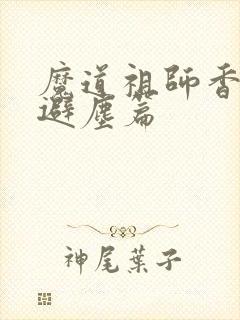 魔道祖師香
避塵篇
神尾葉子